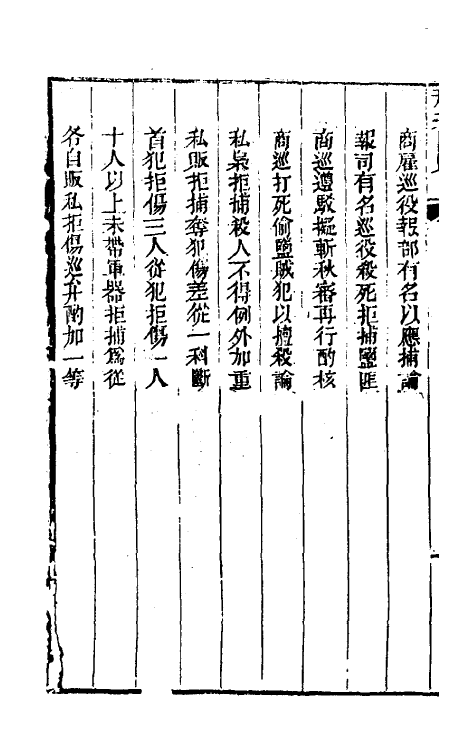 商雇巡役報部有名以應捕論
報司有名巡役殺死拒捕鹽匪
商巡遵駁擬斬秋審再行酌核
商巡打死偷鹽賊犯以擅殺論
私梟拒捕殺人不得例外加重
私販拒捕奪犯傷差從一科斷
首犯拒傷三人從犯拒傷一人
十人以上未帶軍器拒捕爲從
各自販私拒傷巡弁酌加一等